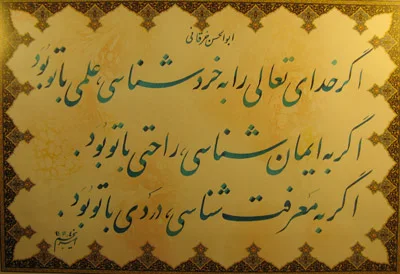 ابوالحسن خرقانی
اگر خدای تعالی را به خرد شناسی، علمی با تو بُوَد.
اگر به ایمان شناسی، راحتی با تو بُوَد.
اگر به مَعرفت شناسی، دَردی با تو بُوَد.